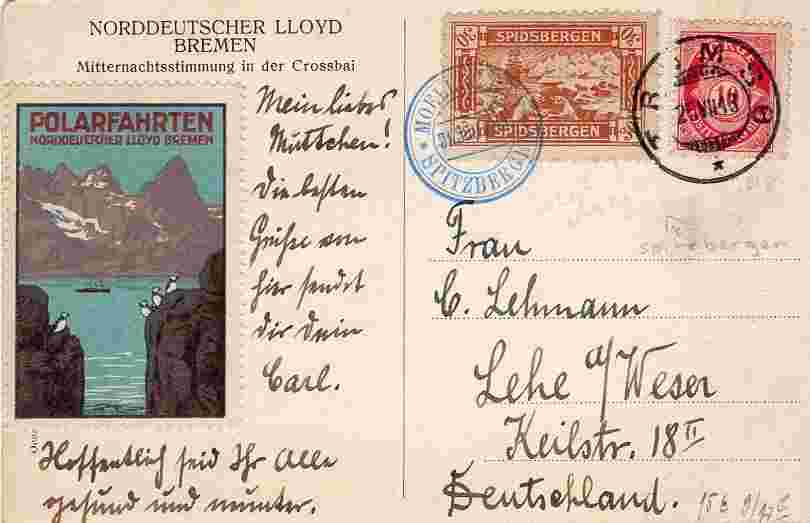 NORDDEUTSCHER LLOYD
BREMEN
Mitternachtsstimmung in der Crossbai
POLARFAHRTEN
NORDDEUTSCHER LLOYD BREMEN
Mein liebes
Muttchen!
Die besten
Grüße von
hier sendet
dir dein
Carl.
Hoffentlich seid Ihr alle
gesund und munter.
SPIDSBERGEN
SPIDSBERGEN
SPITZBERGEN
TROMSØ
10
Frau
C. Lehmann
Lehe a/Weser
Keilstr. 18 II
Deutschland.
Spitzbergen
15 E